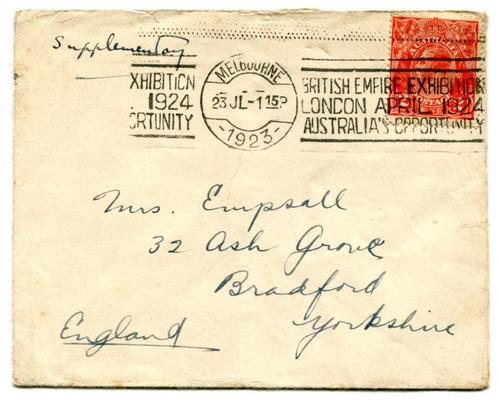 Supplementary
XHIBITION
1924
ORTUNITY
MELBOURNE
23 JL-1 15P
-1923-
BRITISH EMPIRE EXHIBITION
LONDON APRIL 1924
AUSTRALIA'S OPPORTUNITY
AUSTRALIA
Mrs. Empsall
32 Ash Grove
Bradford
Yorkshire
England